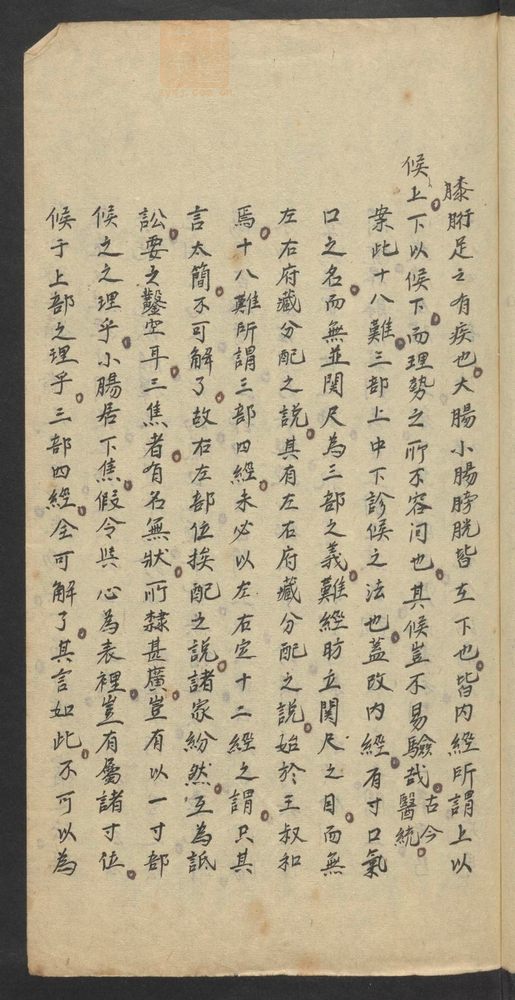 膝胻足之有疾也大腸小腸脖胱皆在下也皆内經所謂上以
候上下以候下而理勢之所不容闫也其候豈不易驗哉古今醫統
案此十八難三部上中下診候之法也蓋攷内經有寸口氣
口之名而無並関尺為三部之義難經昉立関尺之目而無
左右府藏分配之説其有左右府藏分配之説始於王叔和
焉十八難所謂三部四經未必以左右定十二經之謂只其
言太簡不可解了故右左部位挨配之説諸家紛然互為詆
訟要之鑿空耳三焦者有名無狀所隸甚廣豈有以一寸部
候之之理乎小腸居下焦假令與心為表裡豈有屬諸寸位
候于上部之理乎三部四經全可解了其言如此不可以為